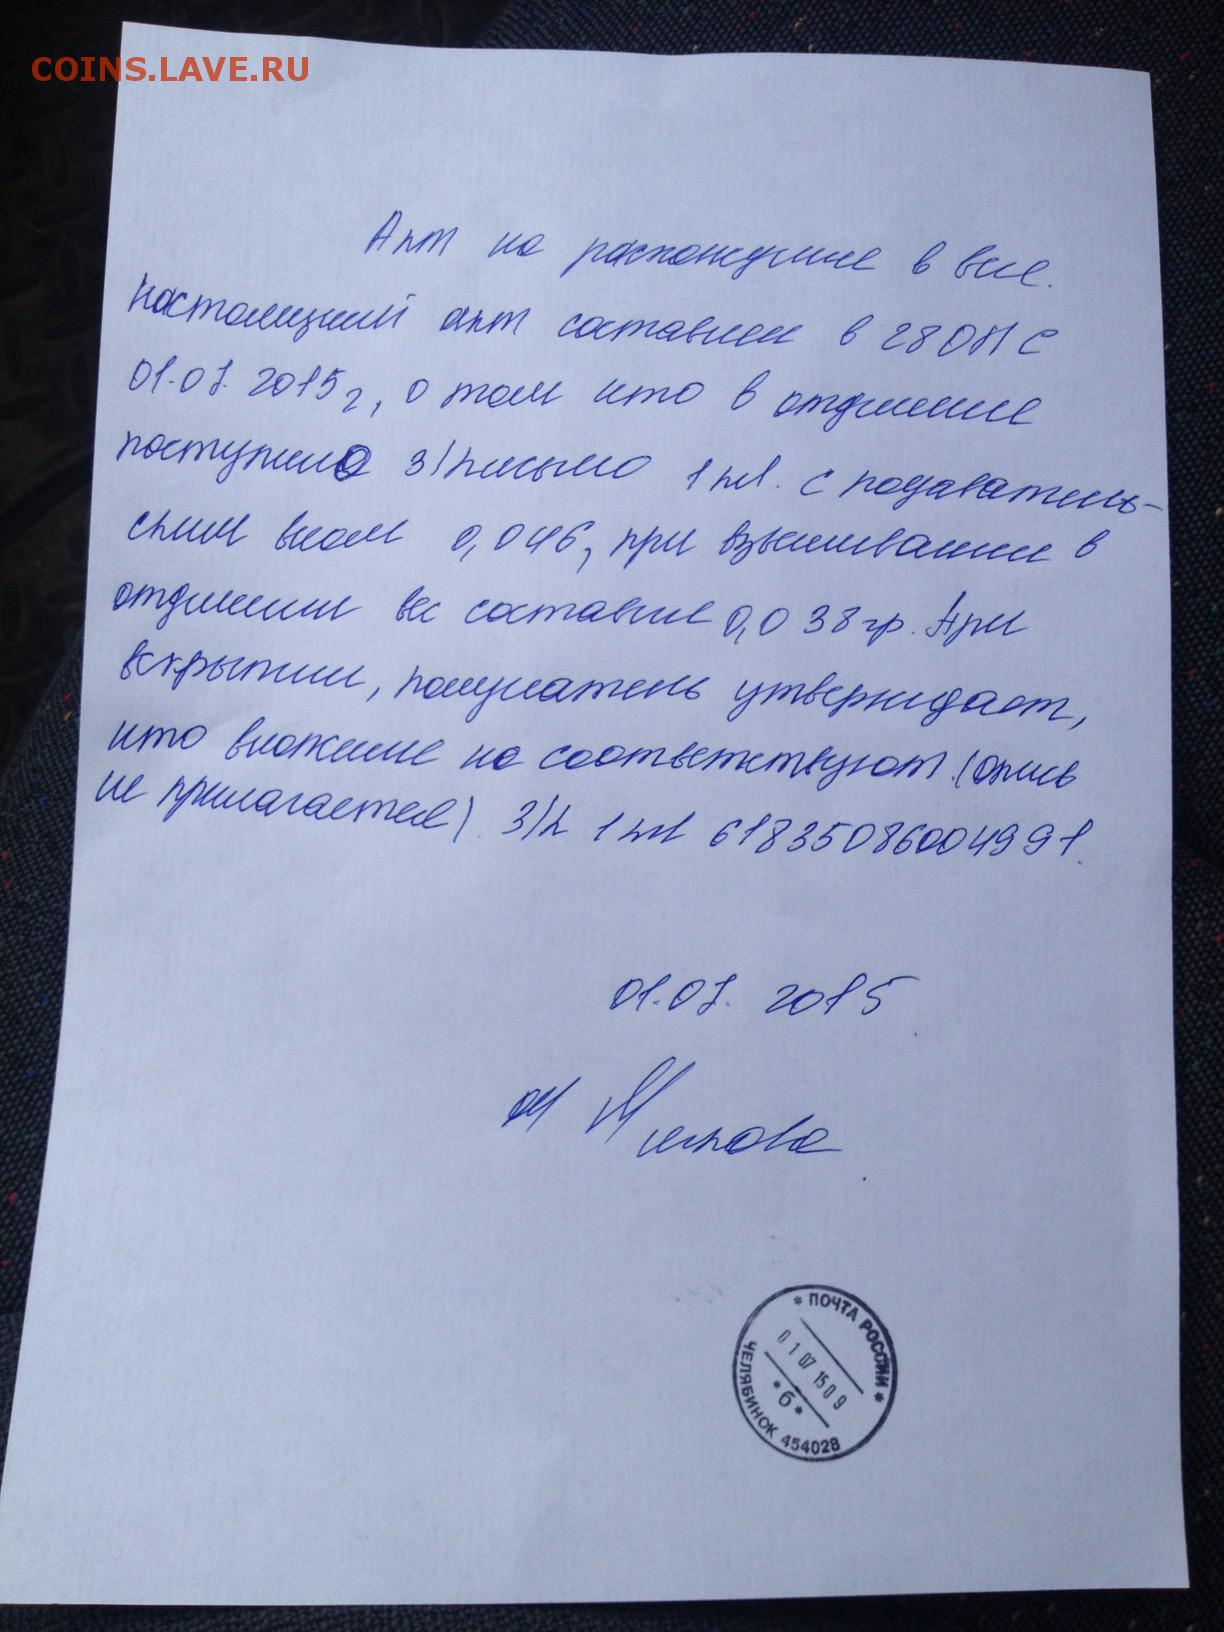 COINS.LAVE.RU
Акт на расхождение в весе.
Настоящий акт составлен в 28 ОПС
01.07.2015г, о том что в отделение
поступило з/письмо 1 кл. с подаватель-
ским весом 0,046, при взвешивании в
отделении вес составил 0,038 гр. При
вскрытии, получатель утверждает,
что вложение не соответствуют. (опись
не прилагается) з/п 1 кл 61835086004991.
01.07.2015
* ПОЧТА РОССИИ *
01 07 15 09
* б *
ЧЕЛЯБИНСК 454028